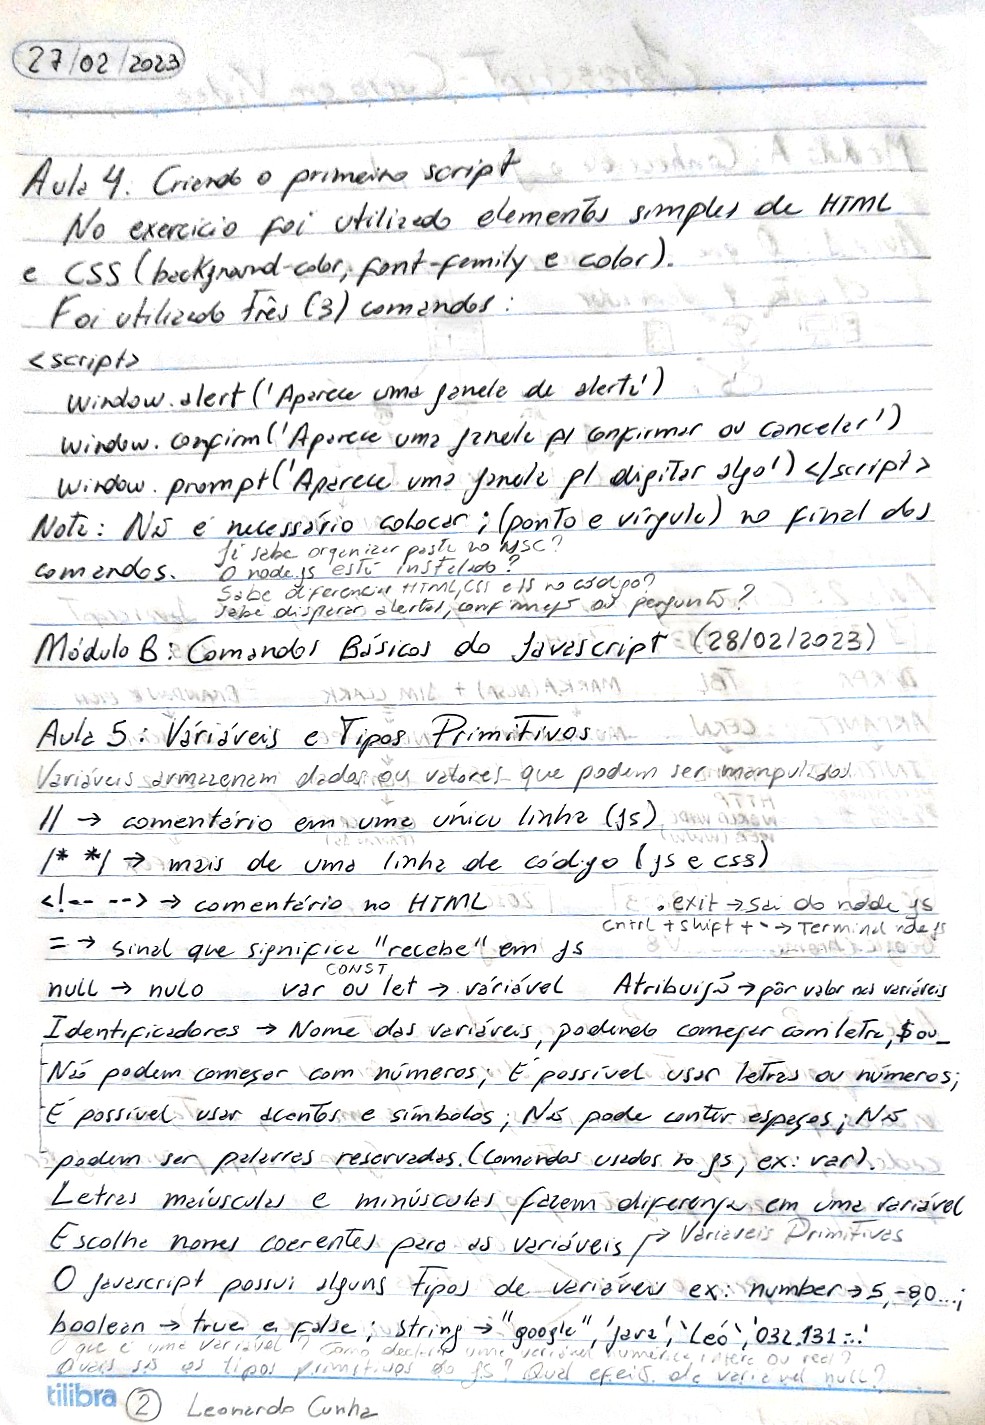 27/02/2023
Aula 4. Criando o primeiro script
No exercício foi utilizado elementos simples de HTML
e CSS (background-color, font-family e color).
Foi utilizado Três (3) comandos:
<script>
window.alert('Aparece uma janela de alerta')
window.confirm('Aparece uma janela p/ confirmar ou cancelar')
window.prompt('Aparece uma janela p/ digitar algo') </script>
Nota: Não é necessário colocar ; (ponto e vírgula) no final dos
Já sabe organizar pasta no VSC?
comandos. O node.js está instalado?
Sabe diferenciar HTML, CSS e JS no código?
Sabe disparar alertas, confirmaçs ou pergunta?
Módulo B: Comandos Básicos do Javascript (28/02/2023)
Aula 5: Váriáveis e Tipos Primitivos
Variáveis armazenam dados ou valores que podem ser manipulados.
// → comentário em uma única linha (js)
/* */ → mais de uma linha de código (js e css)
<!-- --> → comentário no HTML .exit → sai do node js
cntrl + shift + ` → Terminal node js
= → sinal que significa "recebe" em js
CONST
null → nulo var ou let → váriável Atribuição → pôr valor nas variáveis
Identificadores → Nome das variáveis, podendo começar com letra, $ ou _
Não podem começar com números; É possível usar letras ou números;
É possível usar acentos e símbolos; Não pode conter espaços; Não
podem ser palavras reservadas. (Comandos usados no js, ex: var).
Letras maiúsculas e minúsculas fazem diferença em uma variável
Escolha nomes coerentes para as variáveis → Variáveis Primitivas
O javascript possui alguns Tipos de variáveis ex: number → 5, -9,0...;
boolean → true e false; String → "google", 'java', `Leo`, '032.131...'
O que é uma variável? Como declara uma variável numérica, inteira ou real?
Quais são os tipos primitivos do JS? Qual efeito da variável null?
tilibra 2 Leonardo Cunha